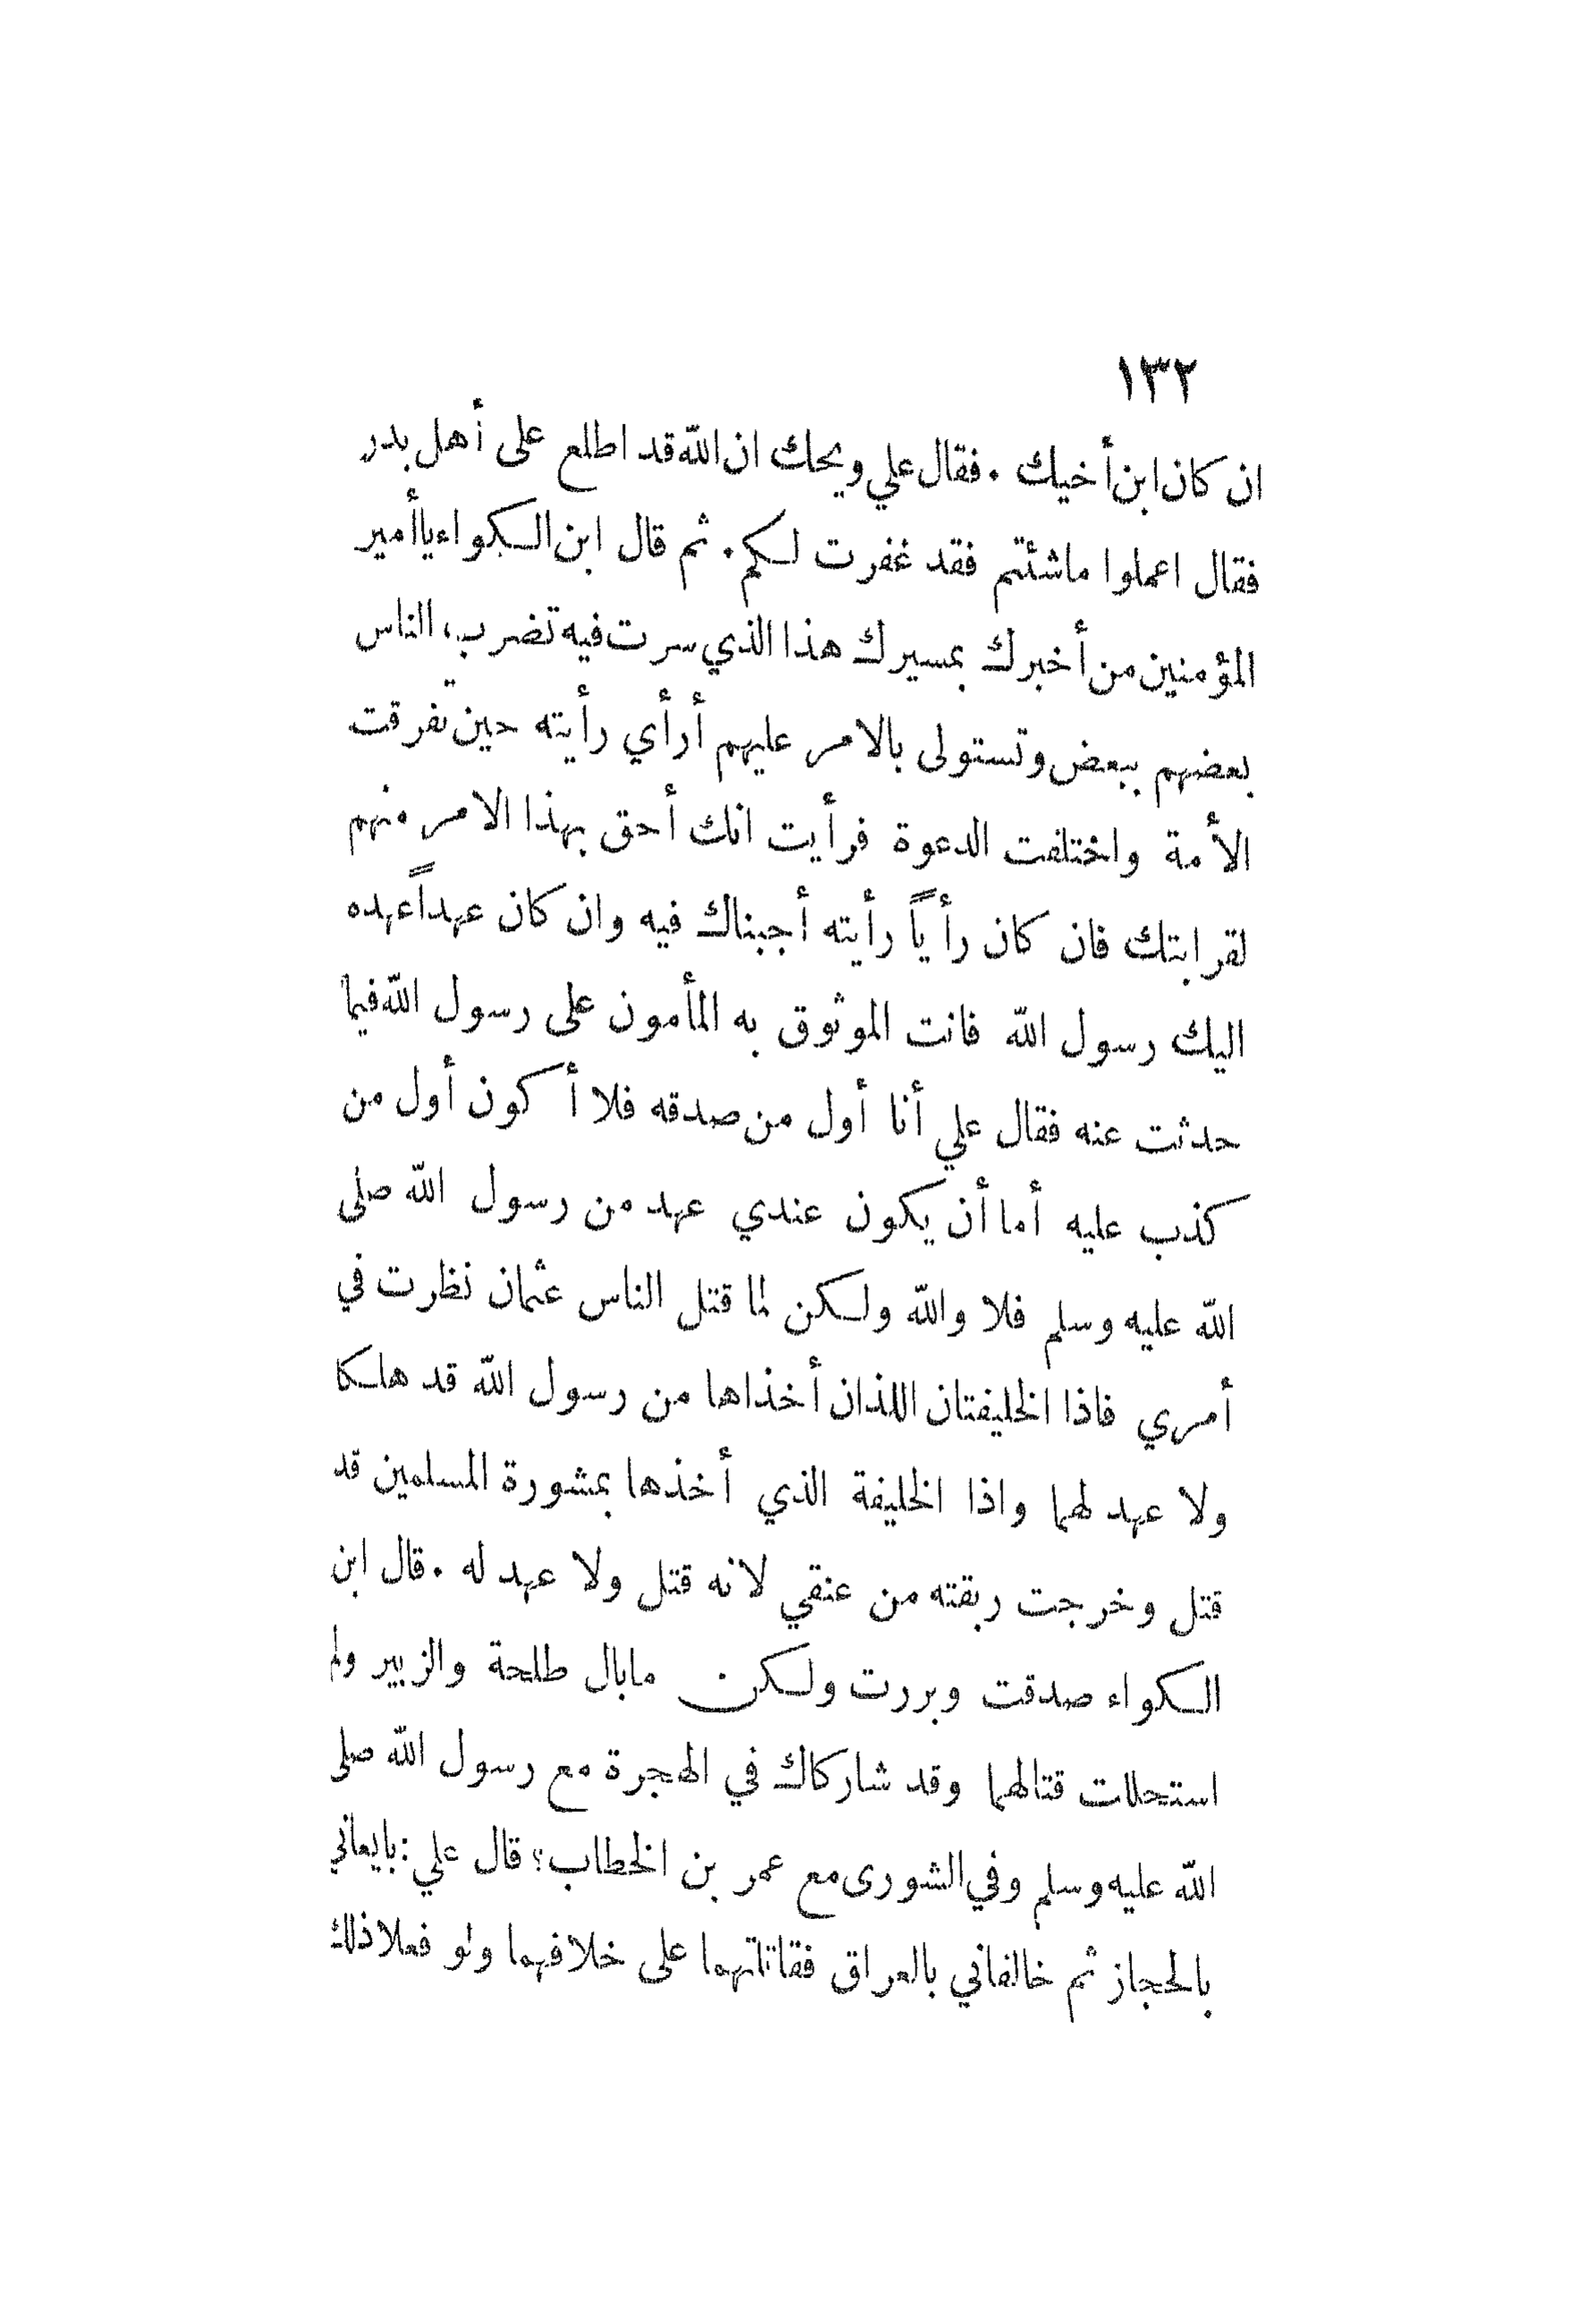 ١٣٢
ان كان ابن أخيك . فقال علي ويحك ان الله قد اطلع على أهل بدر
فقال اعملوا ماشئتم فقد غفرت لكم . ثم قال ابن الكواء ياأمير
المؤمنين من أخبرك بمسيرك هذا الذي سرت فيه تضرب، الناس
بعضهم ببعض وتستولى بالامر عليهم أرأي رأيته حين تفرقت
الأمة واختلفت الدعوة فرأيت انك أحق بهذا الامر منهم
لقرابتك فان كان رأياً رأيته أجبناك فيه وان كان عهداً عهده
اليك رسول الله فانت الموثوق به المأمون على رسول الله فيما
حدثت عنه فقال علي أنا أول من صدقه فلا أكون أول من
كذب عليه أما أن يكون عندي عهد من رسول الله صلى
الله عليه وسلم فلا والله ولكن لما قتل الناس عثمان نظرت في
أمري فاذا الخليفتان اللذان أخذاها من رسول الله قد هلكا
ولا عهد لهما واذا الخليفة الذي أخذها بمشورة المسلمين قد
قتل وخرجت ربقته من عنقي لانه قتل ولا عهد له . قال ابن
الكواء صدقت وبررت ولكن مابال طلحة والزبير ولم
استحللت قتالهما وقد شاركاك في الهجرة مع رسول الله صلى
الله عليه وسلم وفي الشورى مع عمر بن الخطاب؟ قال علي : بايعاني
بالحجاز ثم خالفاني بالعراق فقاتلتهما على خلافهما ولو فعلا ذلك